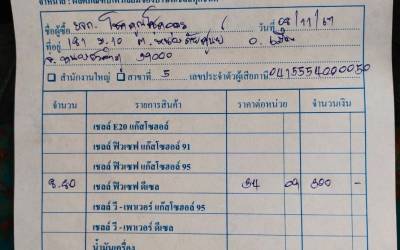 ชื่อผู้ซื้อ หจก. โชคคูณโชคถาวร วันที่ 08/11/67
ที่อยู่ 181 ม.10 ต. หนอง อ. เมือง
จ. 39000
สำนักงานใหญ่ สาขาที่ 5 เลขประจำตัวผู้เสียภาษี 0415554000050
จำนวน รายการสินค้า ราคาต่อหน่วย จำนวนเงิน
เชลล์ E20 แก๊สโซฮอล์
เชลล์ ฟิวเซฟ แก๊สโซฮอล์ 91
เชลล์ ฟิวเซฟ แก๊สโซฮอล์ 95
8.80 เชลล์ ฟิวเซฟ ดีเซล 34 09 300 -
เชลล์ วี - เพาเวอร์ แก๊สโซฮอล์ 95
เชลล์ วี - เพาเวอร์ ดีเซล
น้ำมันเครื่อง